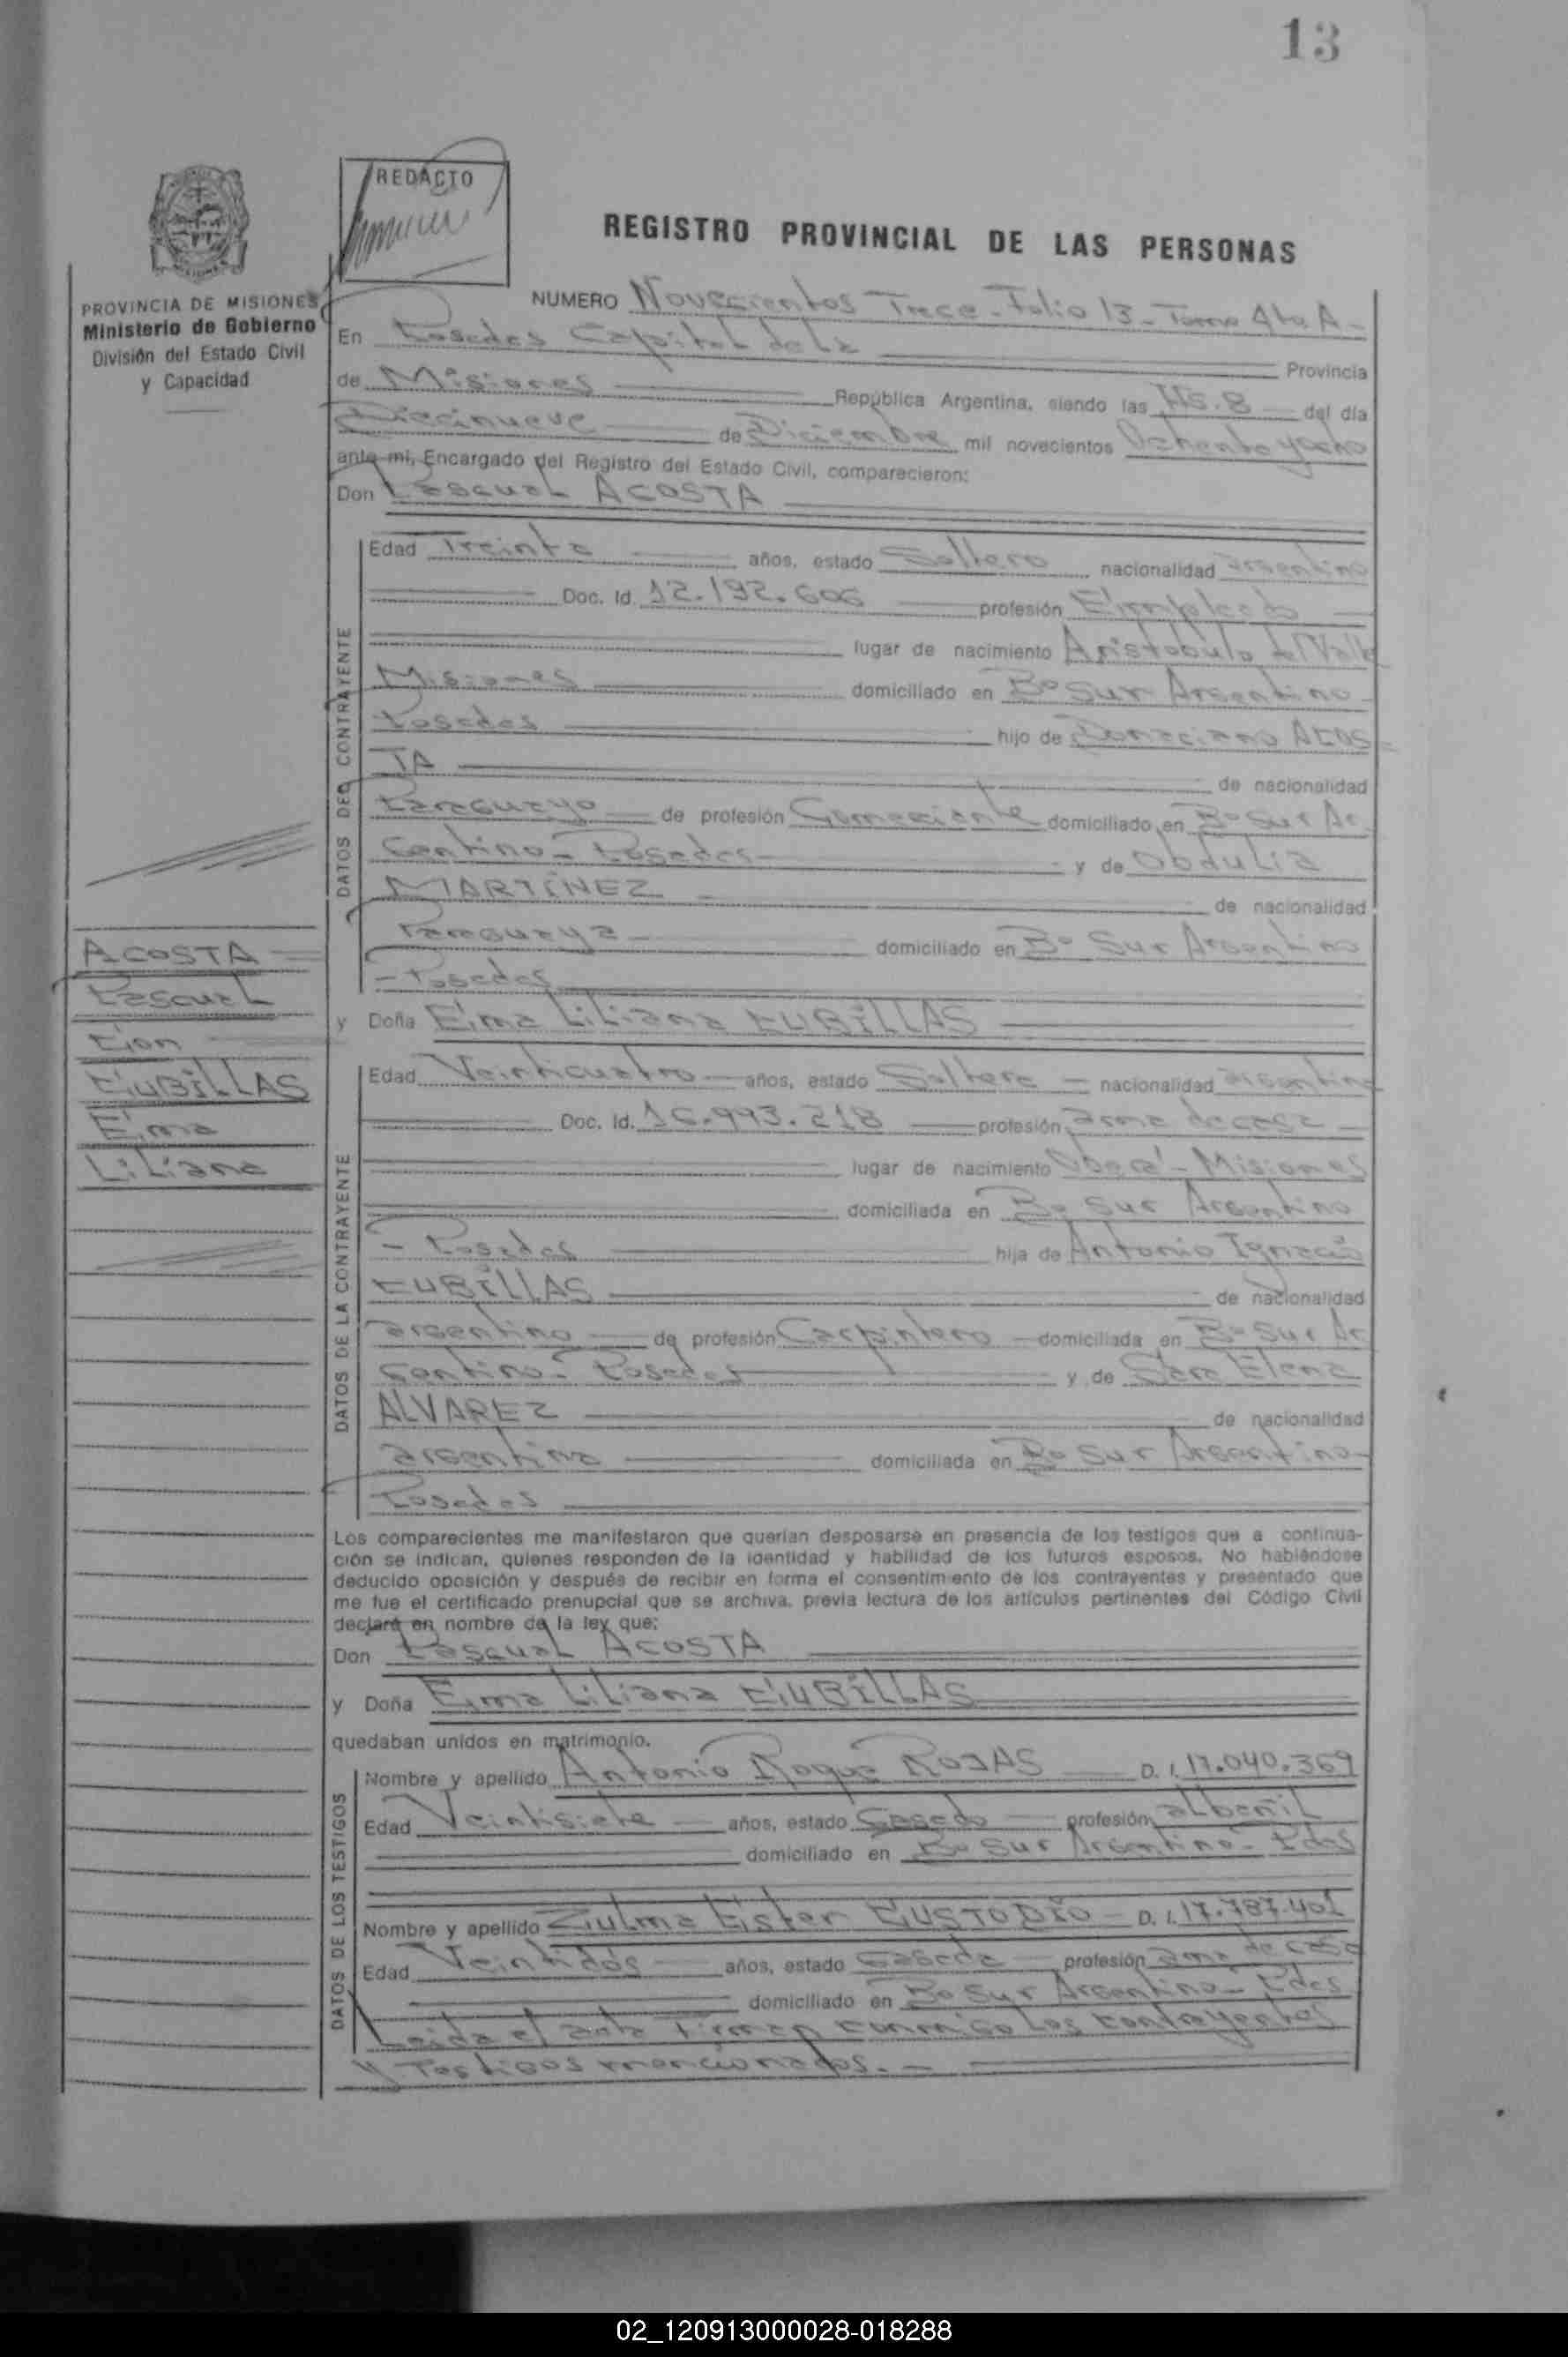 13
REDACTO
REGISTRO PROVINCIAL DE LAS PERSONAS
PROVINCIA DE MISIONES
Ministerio de Gobierno
División del Estado Civil
y Capacidad
NUMERO Novecientos Trece - Folio 13 - Tomo 4to A -
En Posadas Capital de la Provincia
de Misiones República Argentina, siendo las Hs. 8 del día
Diecinueve de Diciembre mil novecientos Ochenta y ocho
ante mi, Encargado del Registro del Estado Civil, comparecieron:
Don Pascual ACOSTA
DATOS DEL CONTRAYENTE
Edad Treinta años, estado Soltero nacionalidad argentino
Doc. Id. 12.192.606 profesión Empleado
lugar de nacimiento Aristobulo del Valle
Misiones domiciliado en Bº Sur Argentino -
Posadas hijo de Donaciano ACOS-
TA de nacionalidad
Paraguayo de profesión Comerciante domiciliado en Bº Sur Ar
gentino - Posadas - y de Obdulia
MARTÍNEZ - de nacionalidad
Paraguaya - domiciliado en Bº Sur Argentino
- Posadas
ACOSTA
Pascual
Con
CUBILLAS
Ema
Liliana
y Doña Ema Liliana CUBILLAS
DATOS DE LA CONTRAYENTE
Edad Veinticuatro años, estado Soltera - nacionalidad argentina
Doc. Id. 16.993.218 profesión ama de casa
lugar de nacimiento Oberá - Misiones
domiciliada en Bº Sur Argentino
- Posadas hija de Antonio Ignacio
CUBILLAS de nacionalidad
argentino de profesión Carpintero domiciliada en Bº Sur Ar
gentino - Posadas y de Sara Elena
ALVAREZ de nacionalidad
argentina domiciliada en Bº Sur Argentino -
Posadas
Los comparecientes me manifestaron que querían desposarse en presencia de los testigos que a continua-
ción se indican, quienes responden de la identidad y habilidad de los futuros esposos. No habiéndose
deducido oposición y después de recibir en forma el consentimiento de los contrayentes y presentado que
me fue el certificado prenupcial que se archiva, previa lectura de los artículos pertinentes del Código Civil
declaré en nombre de la ley que:
Don Pascual ACOSTA
y Doña Ema Liliana CUBILLAS
quedaban unidos en matrimonio.
DATOS DE LOS TESTIGOS
Nombre y apellido Antonio Roque ROJAS D. I. 17.040.369
Edad Veintisiete años, estado Casado profesión albañil
domiciliado en Bº Sur Argentino - Pdas
Nombre y apellido Zulma Ester CUSTODIO - D. I. 17.787.401
Edad Veintidós años, estado Casada profesión ama de casa
domiciliado en Bº Sur Argentino - Pdas
Leída el acta Firman conmigo los contrayentes
y Testigos mencionados. -
02_120913000028-018288